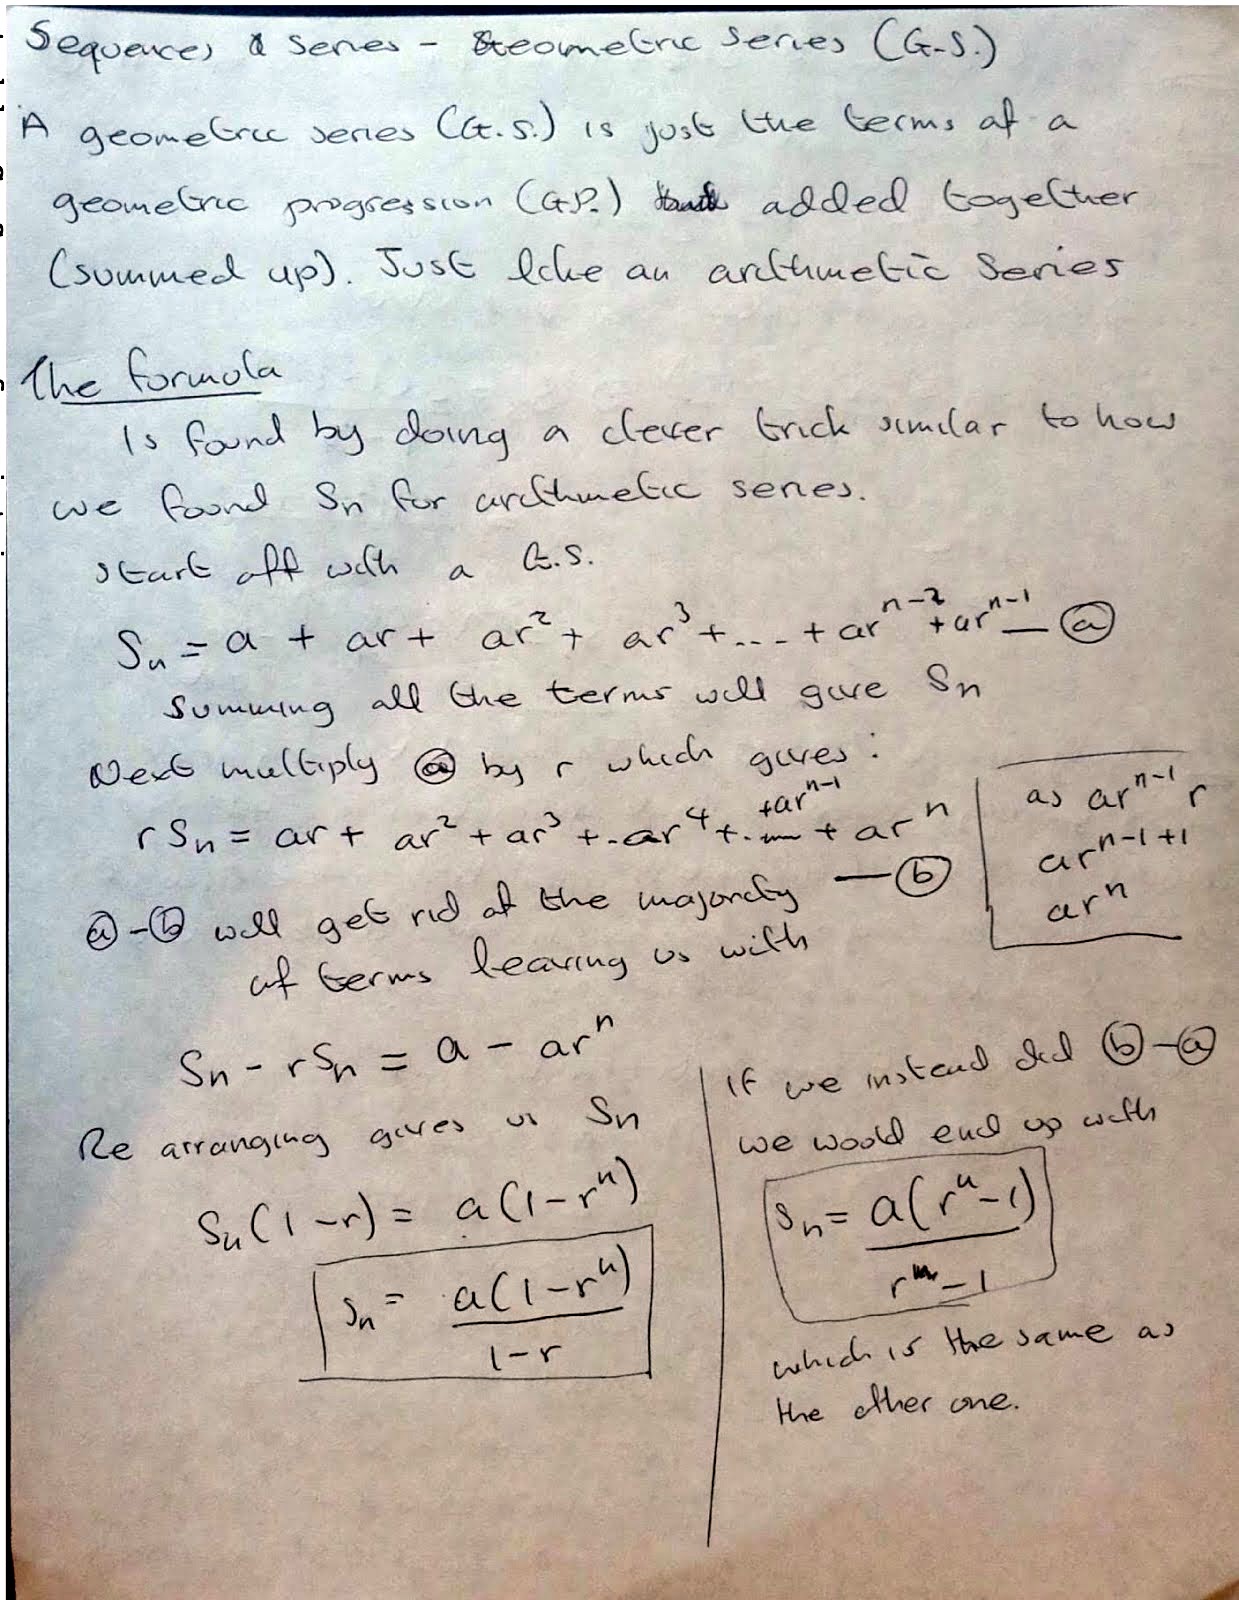 Sequences & Series - Geometric Series (G.S.)
A geometric series (G.S.) is just the terms of a
geometric progression (G.P.) added together
(summed up). Just like an arithmetic Series
The formula
Is found by doing a clever trick similar to how
we found Sn for arithmetic series.
start off with a G.S.
Sn = a + ar + ar² + ar³ + ... + arⁿ⁻² + arⁿ⁻¹ — ⓐ
Summing all the terms will give Sn
Next multiply ⓐ by r which gives:
rSn = ar + ar² + ar³ + ar⁴ + ... + arⁿ⁻¹ + arⁿ — ⓑ
as arⁿ⁻¹ r
arⁿ⁻¹⁺¹
arⁿ
ⓐ-ⓑ will get rid of the majority
of terms leaving us with
Sn - rSn = a - arⁿ
Re arranging gives us Sn
Sn(1-r) = a(1-rⁿ)
Sn = a(1-rⁿ)
1-r
If we instead did ⓑ-ⓐ
we would end up with
Sn = a(rⁿ-1)
r-1
which is the same as
the other one.